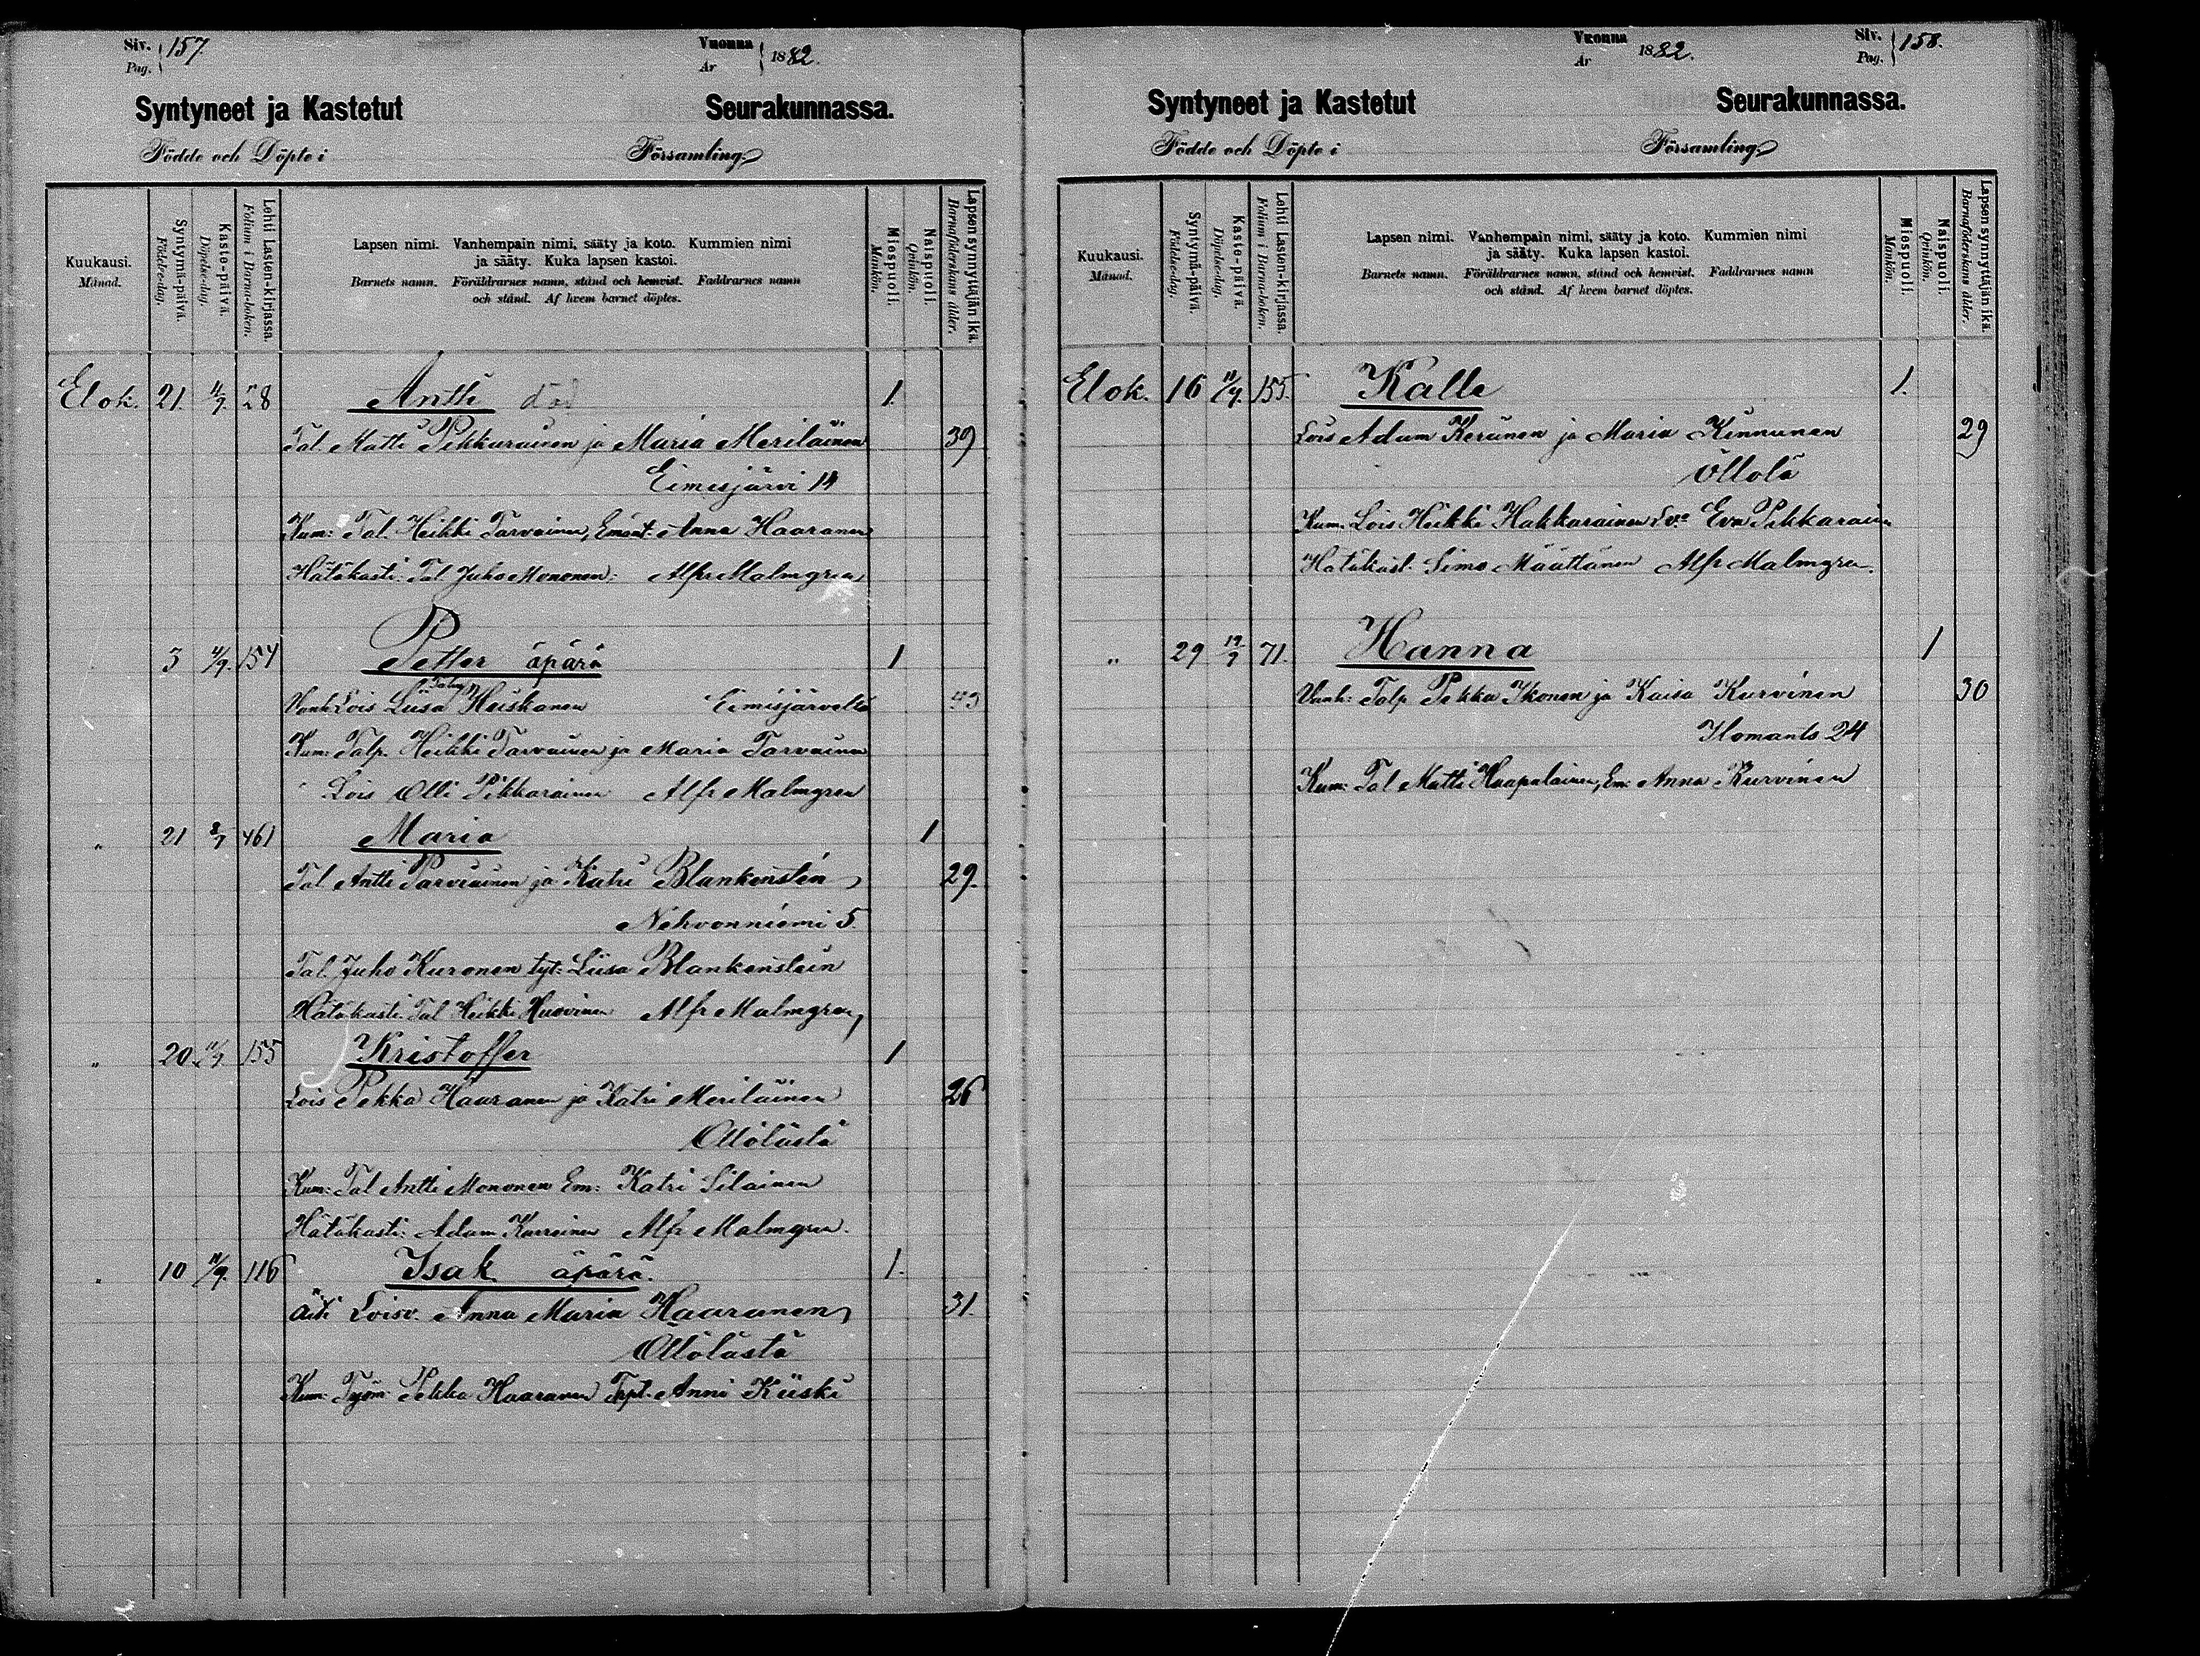 Siv. Pag. 157.
Vuonna År 1882.
Syntyneet ja Kastetut Seurakunnassa.
Födde och Döpte i Församling.
Kuukausi. Månad.
Syntymä-päivä. Födelse-dag.
Kaste-päivä. Döpelse-dag.
Lehti Lasten-kirjassa. Folium i Barna-boken.
Lapsen nimi. Vanhempain nimi, sääty ja koto. Kummien nimi
ja sääty. Kuka lapsen kastoi.
Barnets namn. Föräldrarnes namn, stånd och hemvist. Faddrarnes namn
och stånd. Af hvem barnet döptes.
Miespuoli. Mankön.
Naispuoli. Qvinkön.
Lapsensynnyttäjän ikä. Barnaföderskans ålder.
Elok. 21. 4/9. 28 Antti död 1.
Tal. Matti Pikkarainen ja Maria Meriläinen 39
Eimisjärvi 14
Kum: Tal. Heikki Tarvainen, Emänt: Anna Haaranen
Hätäkasti: Tal Juho Mononen: Alfr Malmgren
3 4/9. 154 Petter äpärä 1
Vanh Lois Liisa Heiskanen Eimisjärveltä 43
Kum: Talp. Heikki Tarvainen ja Maria Tarvainen
Lois Olli Pikkarainen Alfr Malmgren
" 21 8/9 461 Maria 1
Tal Antti Parviainen ja Katri Blankenstén 29.
Nehvonniemi 5.
Tal. Juho Kuronen tyt: Liisa Blankenstein
Hätäkasti Tal Heikki Hurvinen Alfr Malmgren
" 20. 11/9 155 Kristoffer 1
Lois Pekka Haaranen ja Katri Meriläinen 26
Ollölästä
Kum: Tal Antti Mononen Em: Katri Silainen
Hätäkasti: Adam Karvinen Alfr Malmgren.
" 10 11/9. 116 Isak äpärä. 1.
Äiti Loisv. Anna Maria Haaranen 31.
Ollölästä
Kum: Työm. Pekka Haaranen Anni Kiiski
Vuonna År 1882.
Siv. Pag. 158.
Syntyneet ja Kastetut Seurakunnassa.
Födde och Döpte i Församling.
Kuukausi. Månad.
Syntymä-päivä. Födelse-dag.
Kaste-päivä. Döpelse-dag.
Lehti Lasten-kirjassa. Folium i Barna-boken.
Lapsen nimi. Vanhempain nimi, sääty ja koto. Kummien nimi
ja sääty. Kuka lapsen kastoi.
Barnets namn. Föräldrarnes namn, stånd och hemvist. Faddrarnes namn
och stånd. Af hvem barnet döptes.
Miespuoli. Mankön.
Naispuoli. Qvinkön.
Lapsen synnyttäjän ikä. Barnaföderskans ålder.
Elok. 16 11/9. 155. Kalle 1.
Lois Adam Keränen ja Maria Kinnunen 29
Öllölä
Kum. Lois Heikki Hakkarainen Eva Pikkarainen
Hätäkast. Simo Määttänen Alfr Malmgren.
" 29 12/9 71. Hanna 1
Vanh: Talp Pekka Ikonen ja Kaisa Kurvinen 30
Ilomants 24
Kum: Tal Matti Haapalainen, Em: Anna Kurvinen